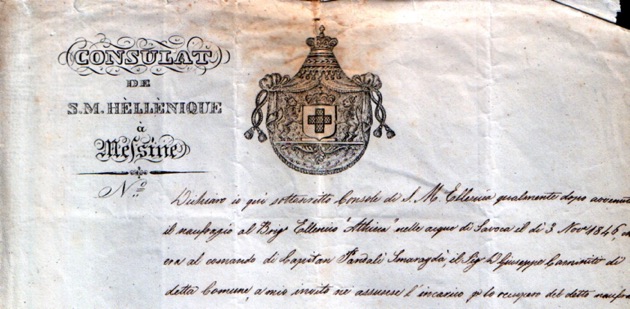 CONSULAT
DE
S.M. HÈLLÈNIQUE
à
Messine
N.º
Dichiaro io qui sottoscritto Console di S. M. Ellenica qualmente dopo avvenuto
il naufragio al Brig.º Ellenico "Athina" nelle acque di Savoca il dì 3 Nov.e 1846,
era al comando di Capitan Pandalì Smaragdà, il Sig.r D. Giuseppe Carminiti di
detta Comune, a mio invito ne assunse l'incarico p lo recupero del detto